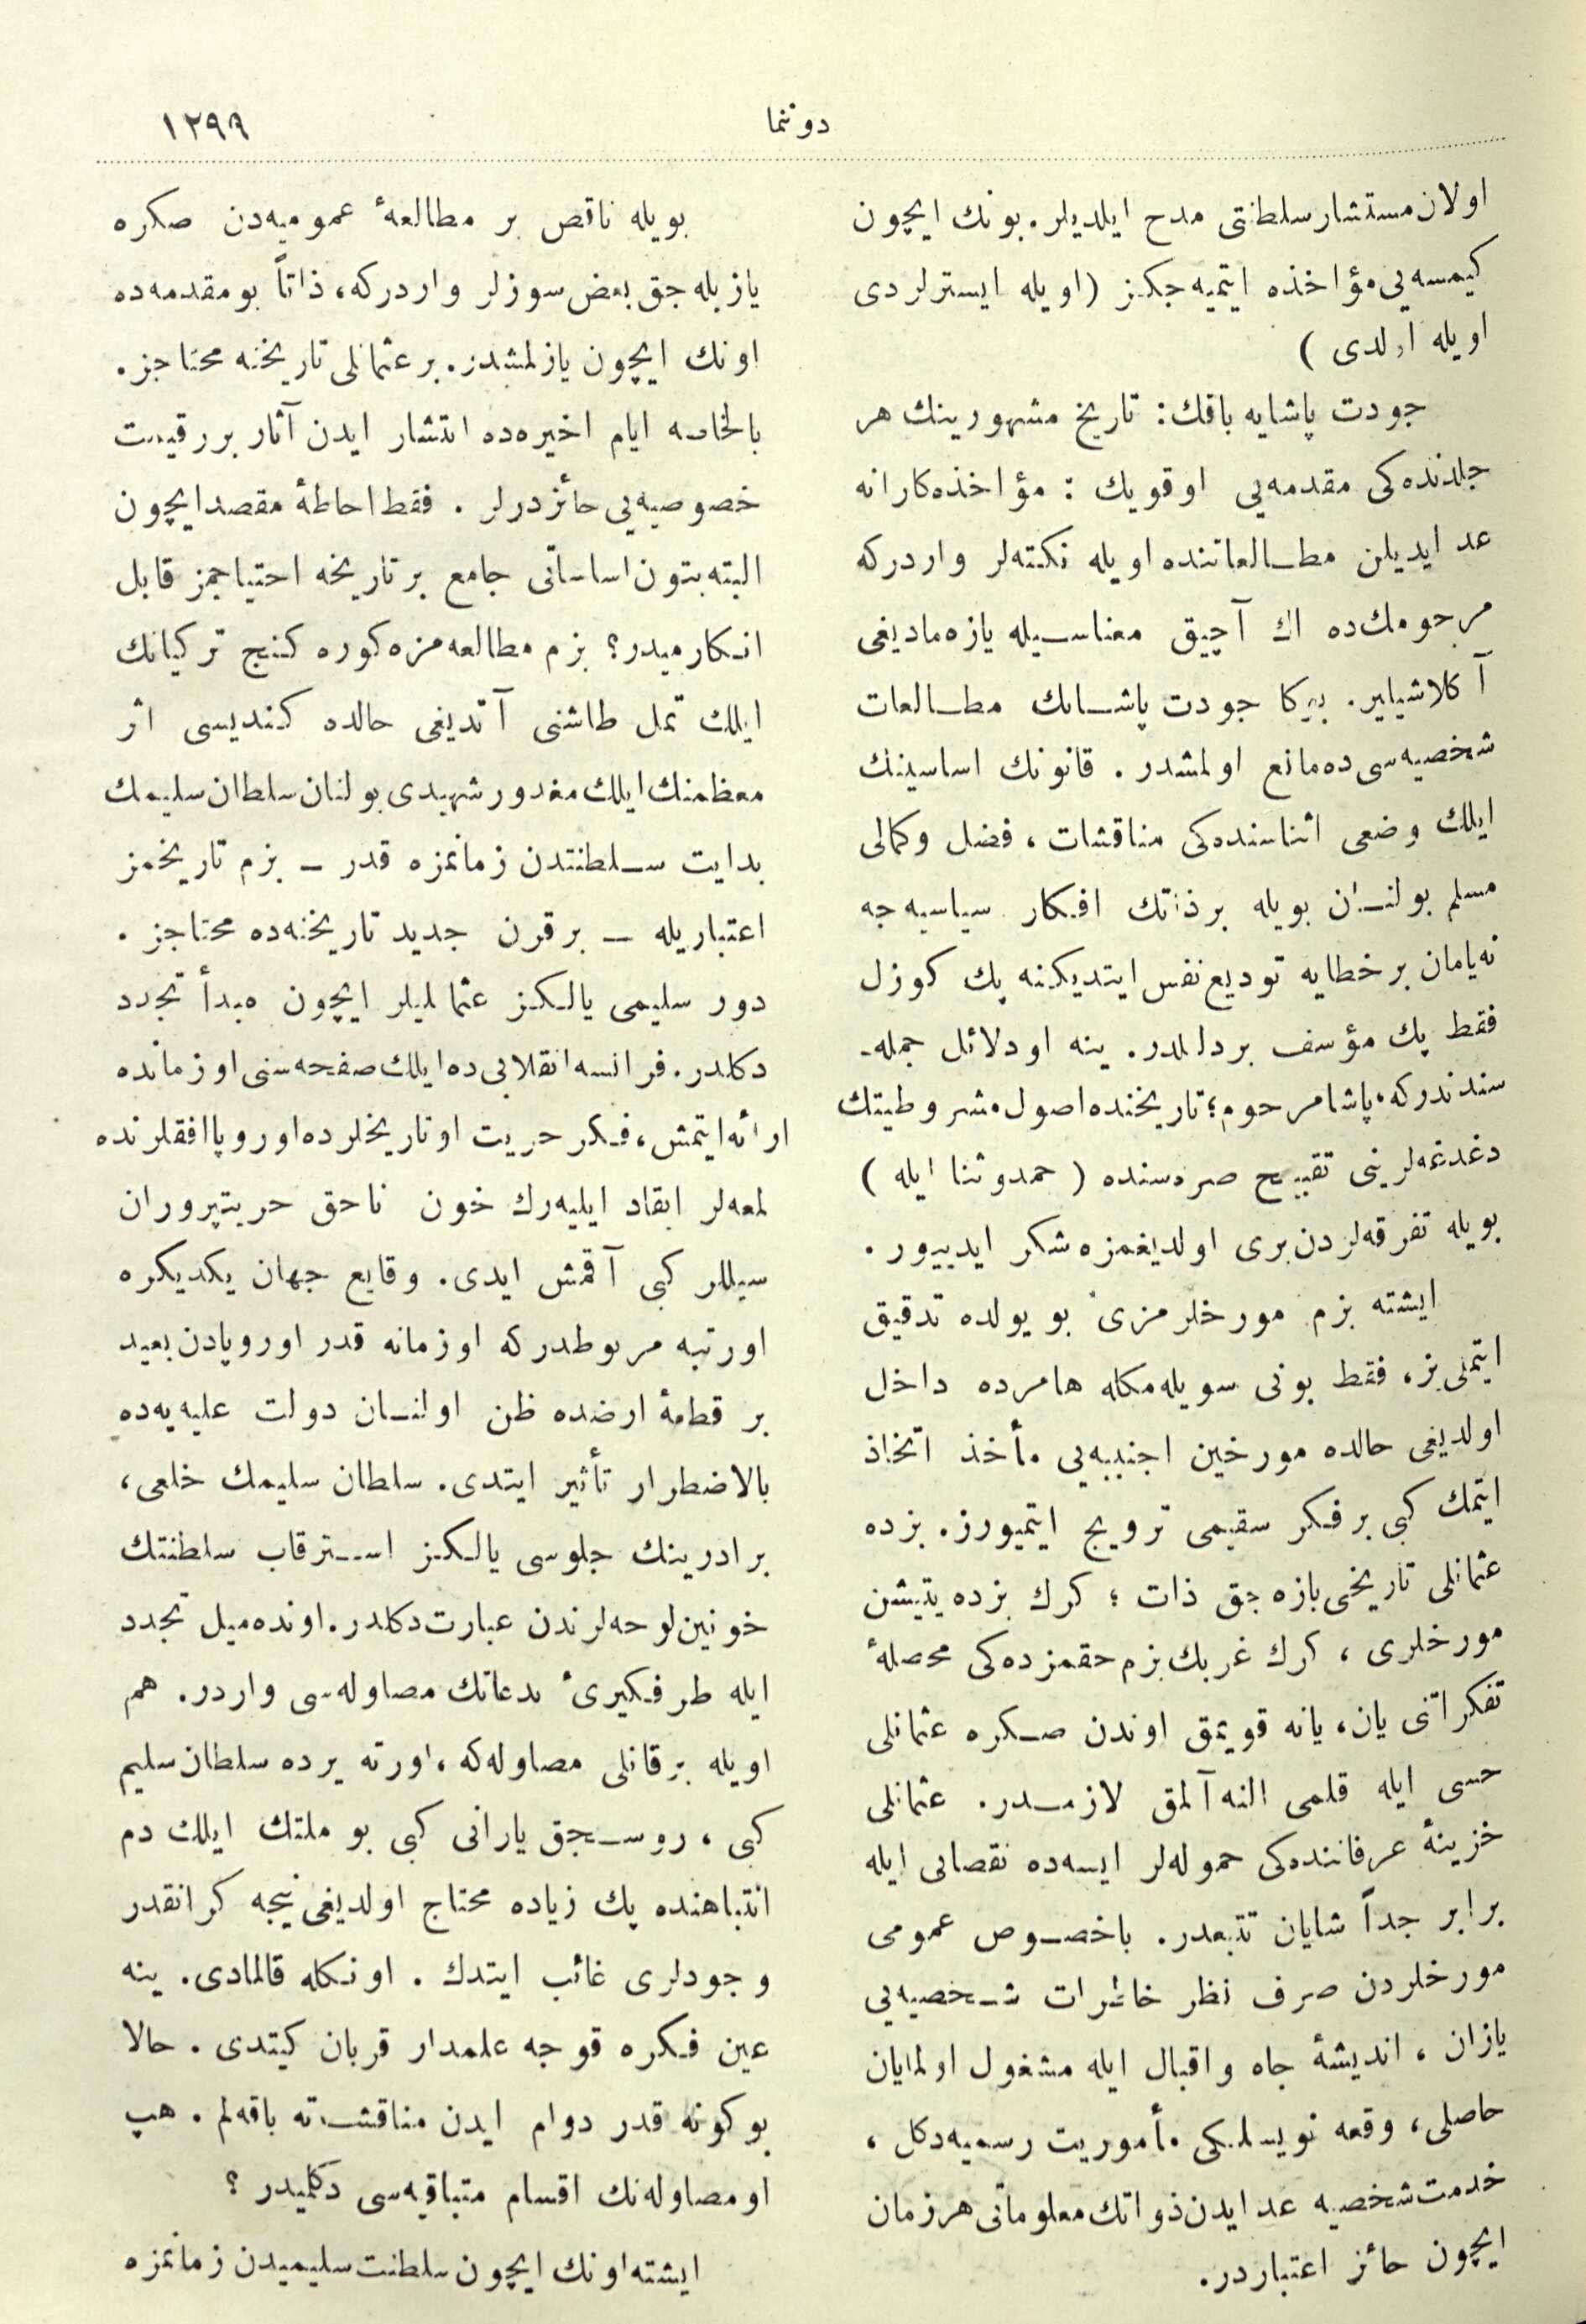 دوننما
١٢٩٩
اولان مستشار سلطنتى مدح ايلديلر. بونك ايچون
كيمسه‌يى مؤاخذه ايتميه جكز (اويله ايسترلردى
اويله اولدى )
جودت پاشايه باقك: تاريخ مشهورينك هر
جلدنده‌كى مقدمه‌يى اوقويك : مؤاخذه‌كارانه
عد ايديلن مطالعاتنده اويله نكته‌لر واردركه
مرحومك‌ده اك آچيق معناسيله يازه‌ماديغى
آكلاشيلير. بيركا جودت پاشانك مطالعات
شخصيه‌سى ده مانع اولمشدر. قانونك اساسينك
ايلك وضعى اثناسنده‌كى مناقشات ، فضل وكمالى
مسلم بولنان بويله برذاتك افكار سياسيه‌جه
نه‌يامان برخطايه توديع نفس ايتديكنه پك كوزل
فقط پك مؤسف بردليلدر. ينه اودلائل جمله-
سندندركه، پاشا مرحوم؛ تاريخنده اصول مشروطيتك
دغدغه‌لرينى تقبيح صره‌سنده ( حمدوثنا ايله )
بويله تفرقه‌لردن برى اولديغمزه شكر ايدييور .
ايشته بزم مورخلرمزى بو يولده تدقيق
ايتملى‌بز، فقط بونى سويله‌مكله هامرده داخل
اولديغى حالده مورخين اجنبيه‌يى مأخذ اتخاذ
ايتمك كبى برفكر سقيمى ترويج ايتميورز. بزده
عثمانلى تاريخى يازه‌جق ذات ؛ كرك بزده يتيشن
مورخلرى ، كرك غربك بزم حقمزده‌كى محصلهٔ
تفكراتنى يان، يانه قويمق اوندن صكره عثمانلى
حسى ايله قلمى النه آلمق لازمدر. عثمانلى
خزينهٔ عرفاننده‌كى حموله‌لر ايسه‌ده نقصانى ايله
برابر جداً شايان تتبعدر. باخصوص عمومى
مورخلردن صرف نظر خاطرات شخصيه‌يى
يازان ، انديشهٔ جاه واقبال ايله مشغول اولمايان
حاصلى، وقعه نويسلكى مأموريت رسميه‌دكل ،
خدمت شخصيه عد ايدن ذواتك معلوماتى هر زمان
ايچون حائز اعتباردر.
بويله ناقص بر مطالعهٔ عموميه‌دن صكره
يازيله‌جق بعض سوزلر واردركه، ذاتاً بومقدمه‌ده
اونك ايچون يازلمشدر. برعثمانلى تاريخنه محتاجز.
بالخاصه ايام اخيره‌ده انتشار ايدن آثار بررقيمت
خصوصيه‌يى حائزدرلر . فقط احاطهٔ مقصد ايچون
البته بتون اساساتى جامع بر تاريخه احتياجمز قابل
انكارميدر؟ بزم مطالعه‌مزه كوره كنج تركيانك
ايلك تمل طاشنى آتديغى حالده كنديسى اثر
معظمنك ايلك مغدور شهيدى بولنان سلطان سليمك
بدايت سلطنتدن زمانمزه قدر ـ بزم تاريخمز
اعتباريله ـ برقرن جديد تاريخنه‌ده محتاجز .
دور سليمى يالكز عثمانليلر ايچون مبدأ تجدد
دكلدر. فرانسه انقلابى ده ايلك صفحه‌سنى اوزمانده
ارائه ايتمش، فكر حريت اوتاريخلرده اوروپا افقلرنده
لمعه‌لر ايقاد ايليه‌رك خون ناحق حريتپروران
سيللر كبى آقمش ايدى. وقايع جهان يكديكره
اورتبه مربوطدركه اوزمانه قدر اوروپادن بعيد
بر قطعهٔ ارضده ظن اولنان دولت عليه‌يه‌ده
بالاضطرار تأثير ايتدى. سلطان سليمك خلعى،
برادرينك جلوسى يالكز استرقاب سلطنتك
خونين لوحه‌لرندن عبارت دكلدر. اونده ميل تجدد
ايله طرفكيرىٔ بدعاتك مصاوله‌سى واردر. هم
اويله برقانلى مصاوله‌كه ، اورته يرده سلطان سليم
كبى ، روسجق يارانى كبى بو ملتك ايلك دم
انتباهنده پك زياده محتاج اولديغى نيجه كرانقدر
وجودلرى غائب ايتدك . اونكله قالمادى. ينه
عين فكره قوجه علمدار قربان كيتدى . حالا
بوكونه قدر دوام ايدن مناقشاته باقه‌لم . هپ
اومصاوله‌نك اقسام متباقيه‌سى دكلميدر ؟
ايشته اونك ايچون سلطنت سليميدن زمانمزه